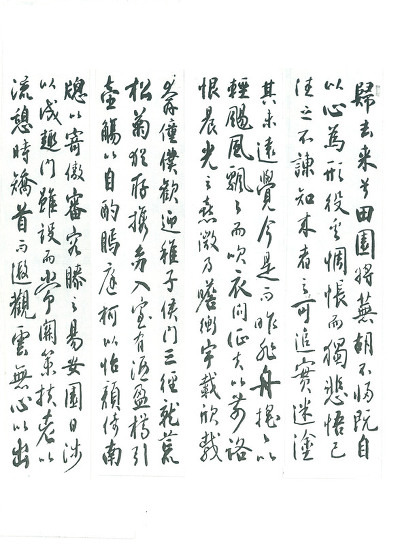 歸去来兮田園將蕪胡不歸既自
以心為形役奚惆悵而獨悲悟已
往之不諫知来者之可追實迷塗
其未遠覺今是而昨非舟摇々以
輕颺風飄々而吹衣問征夫以前路
恨晨光之熹微乃瞻衡宇載欣載
奔僮僕歡迎稚子候門三徑就荒
松菊猶存攜幼入室有酒盈樽引
壺觴以自酌眄庭柯以怡顔倚南
牕以寄傲審容膝之易安園日涉
以成趣門雖設而常關策扶老以
流憩時矯首而遐觀雲無心以出